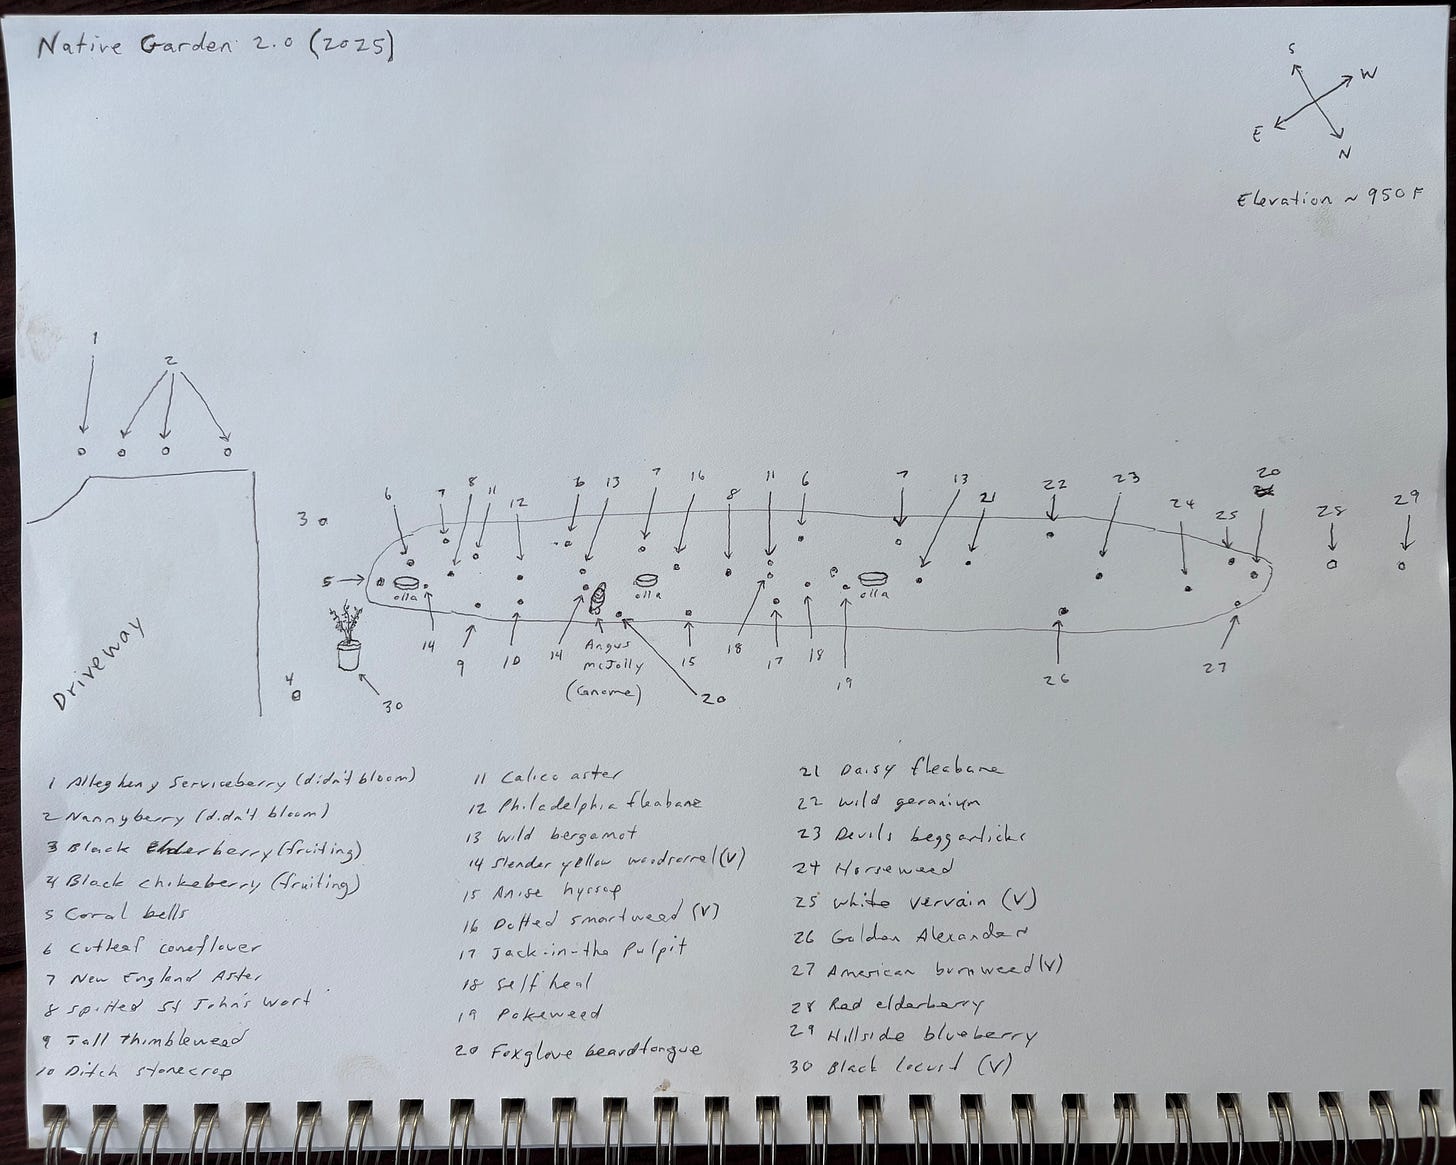 Native Garden 2.0 (2025)
S
W
E
N
Elevation ~ 950 F
1
2
3
4
Driveway
5
6
7
8
11
12
6
13
7
16
8
11
6
7
13
21
22
23
24
25
20
28
29
olla
olla
olla
14
9
10
14
Angus
McJolly
(Gnome)
15
18
17
18
19
20
26
27
30
1 Allegheny Serviceberry (didn't bloom)
2 Nannyberry (didn't bloom)
3 Black Elderberry (fruiting)
4 Black chokeberry (fruiting)
5 Coral bells
6 Cutleaf coneflower
7 New England Aster
8 Spotted St John's Wort
9 Tall thimbleweed
10 Ditch stonecrop
11 Calico aster
12 Philadelphia fleabane
13 Wild bergamot
14 Slender yellow woodsorrel (V)
15 Anise hyssop
16 Dotted smartweed (V)
17 Jack-in-the Pulpit
18 Self heal
19 Pokeweed
20 Foxglove beardtongue
21 Daisy fleabane
22 Wild geranium
23 Devils beggarticks
24 Horseweed
25 White vervain (V)
26 Golden Alexander
27 American burnweed (V)
28 Red elderberry
29 Hillside blueberry
30 Black locust (V)